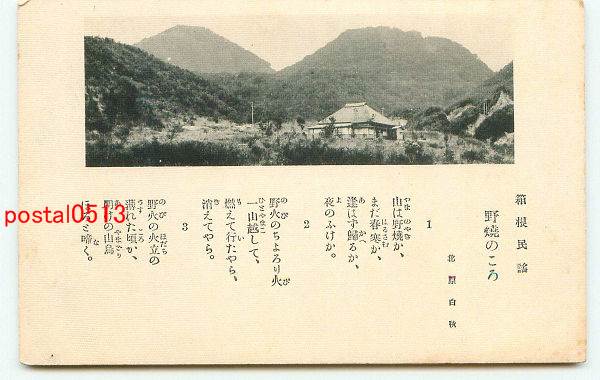 箱根民謡
野燒のころ
北原白秋
1
山は野燒か、
まだ春寒か、
逢はず歸るか、
夜のふけか。
2
野火のちよろり火
一山越して、
燃えて行たやら、
消えてやら。
3
野火の火立の
薄れた頃か、
山鳥
啼く。
postal0513